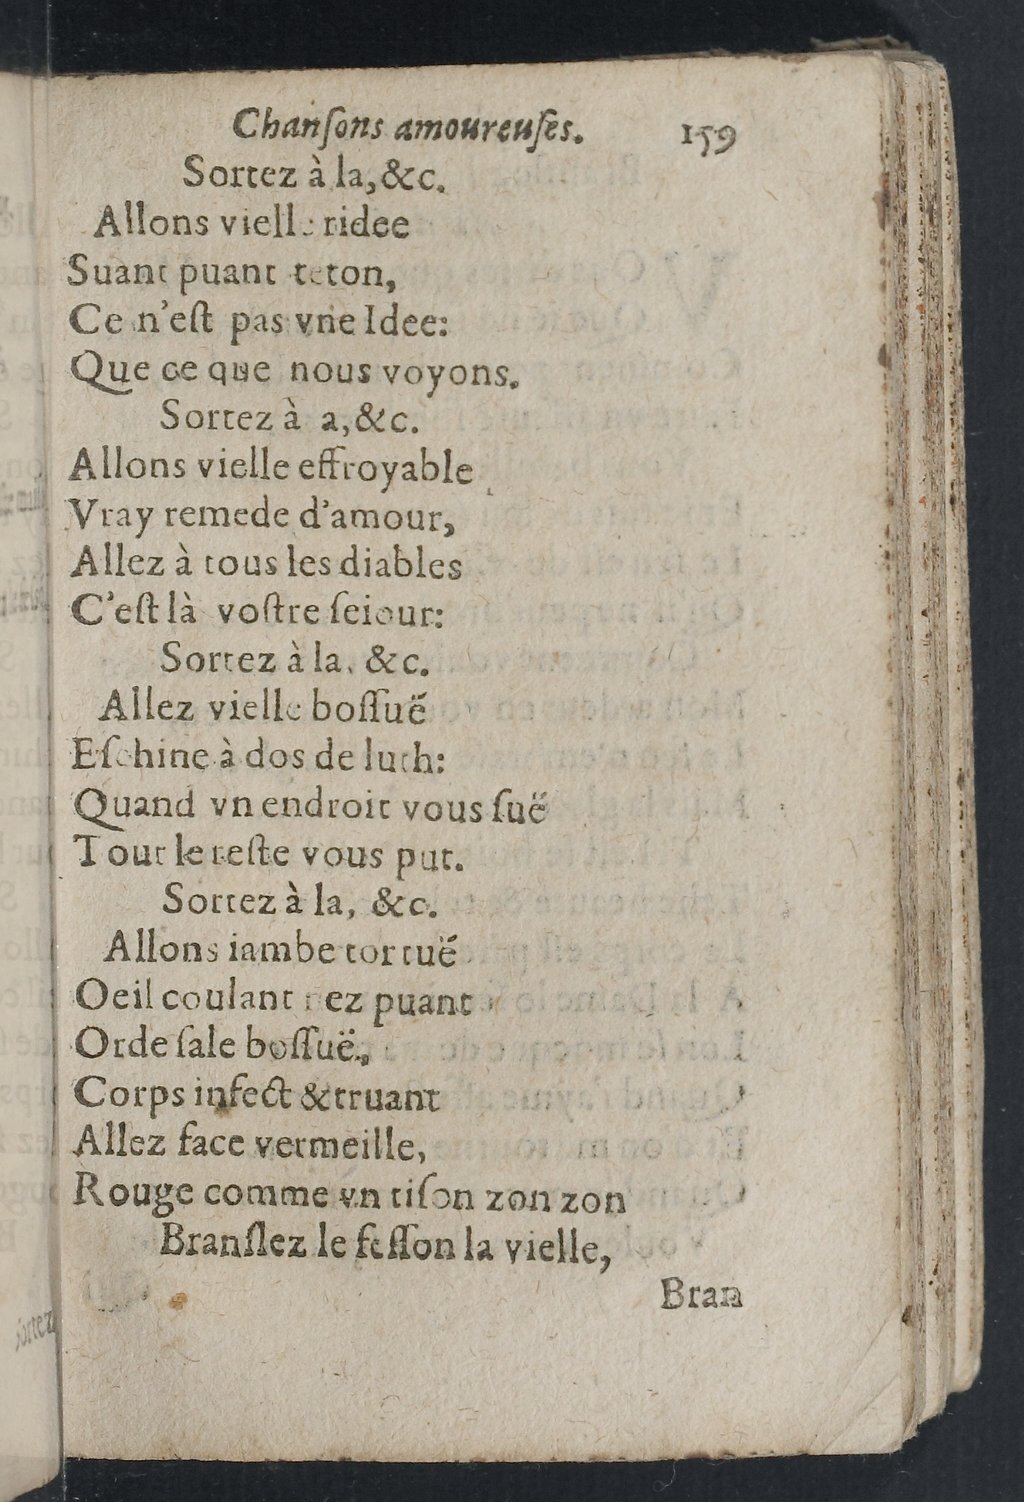 Chanſons amoureuſes. 159
Sortez à la, &c.
Allons vielle ridee
Suant puant teton,
Ce n'eſt pas vne Idee:
Que ce que nous voyons.
Sortez à a, &c.
Allons vielle effroyable
Vray remede d'amour,
Allez à tous les diables
C'eſt là voſtre ſeiour:
Sortez à la, &c.
Allez vielle boſſuë
Eſchine à dos de luth:
Quand vn endroit vous ſuë
Tout le reſte vous put.
Sortez à la, &c.
Allons iambe tortuë
Oeil coulant nez puant
Orde ſale boſſuë,
Corps infect & truant
Allez face vermeille,
Rouge comme vn tiſon zon zon
Branſlez le feſſon la vielle,
Bran
ſortez